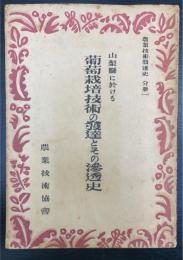 農業技術発達史 分冊一
山梨縣に於ける
葡萄栽培技術の發達とその滲透史
農業技術協會